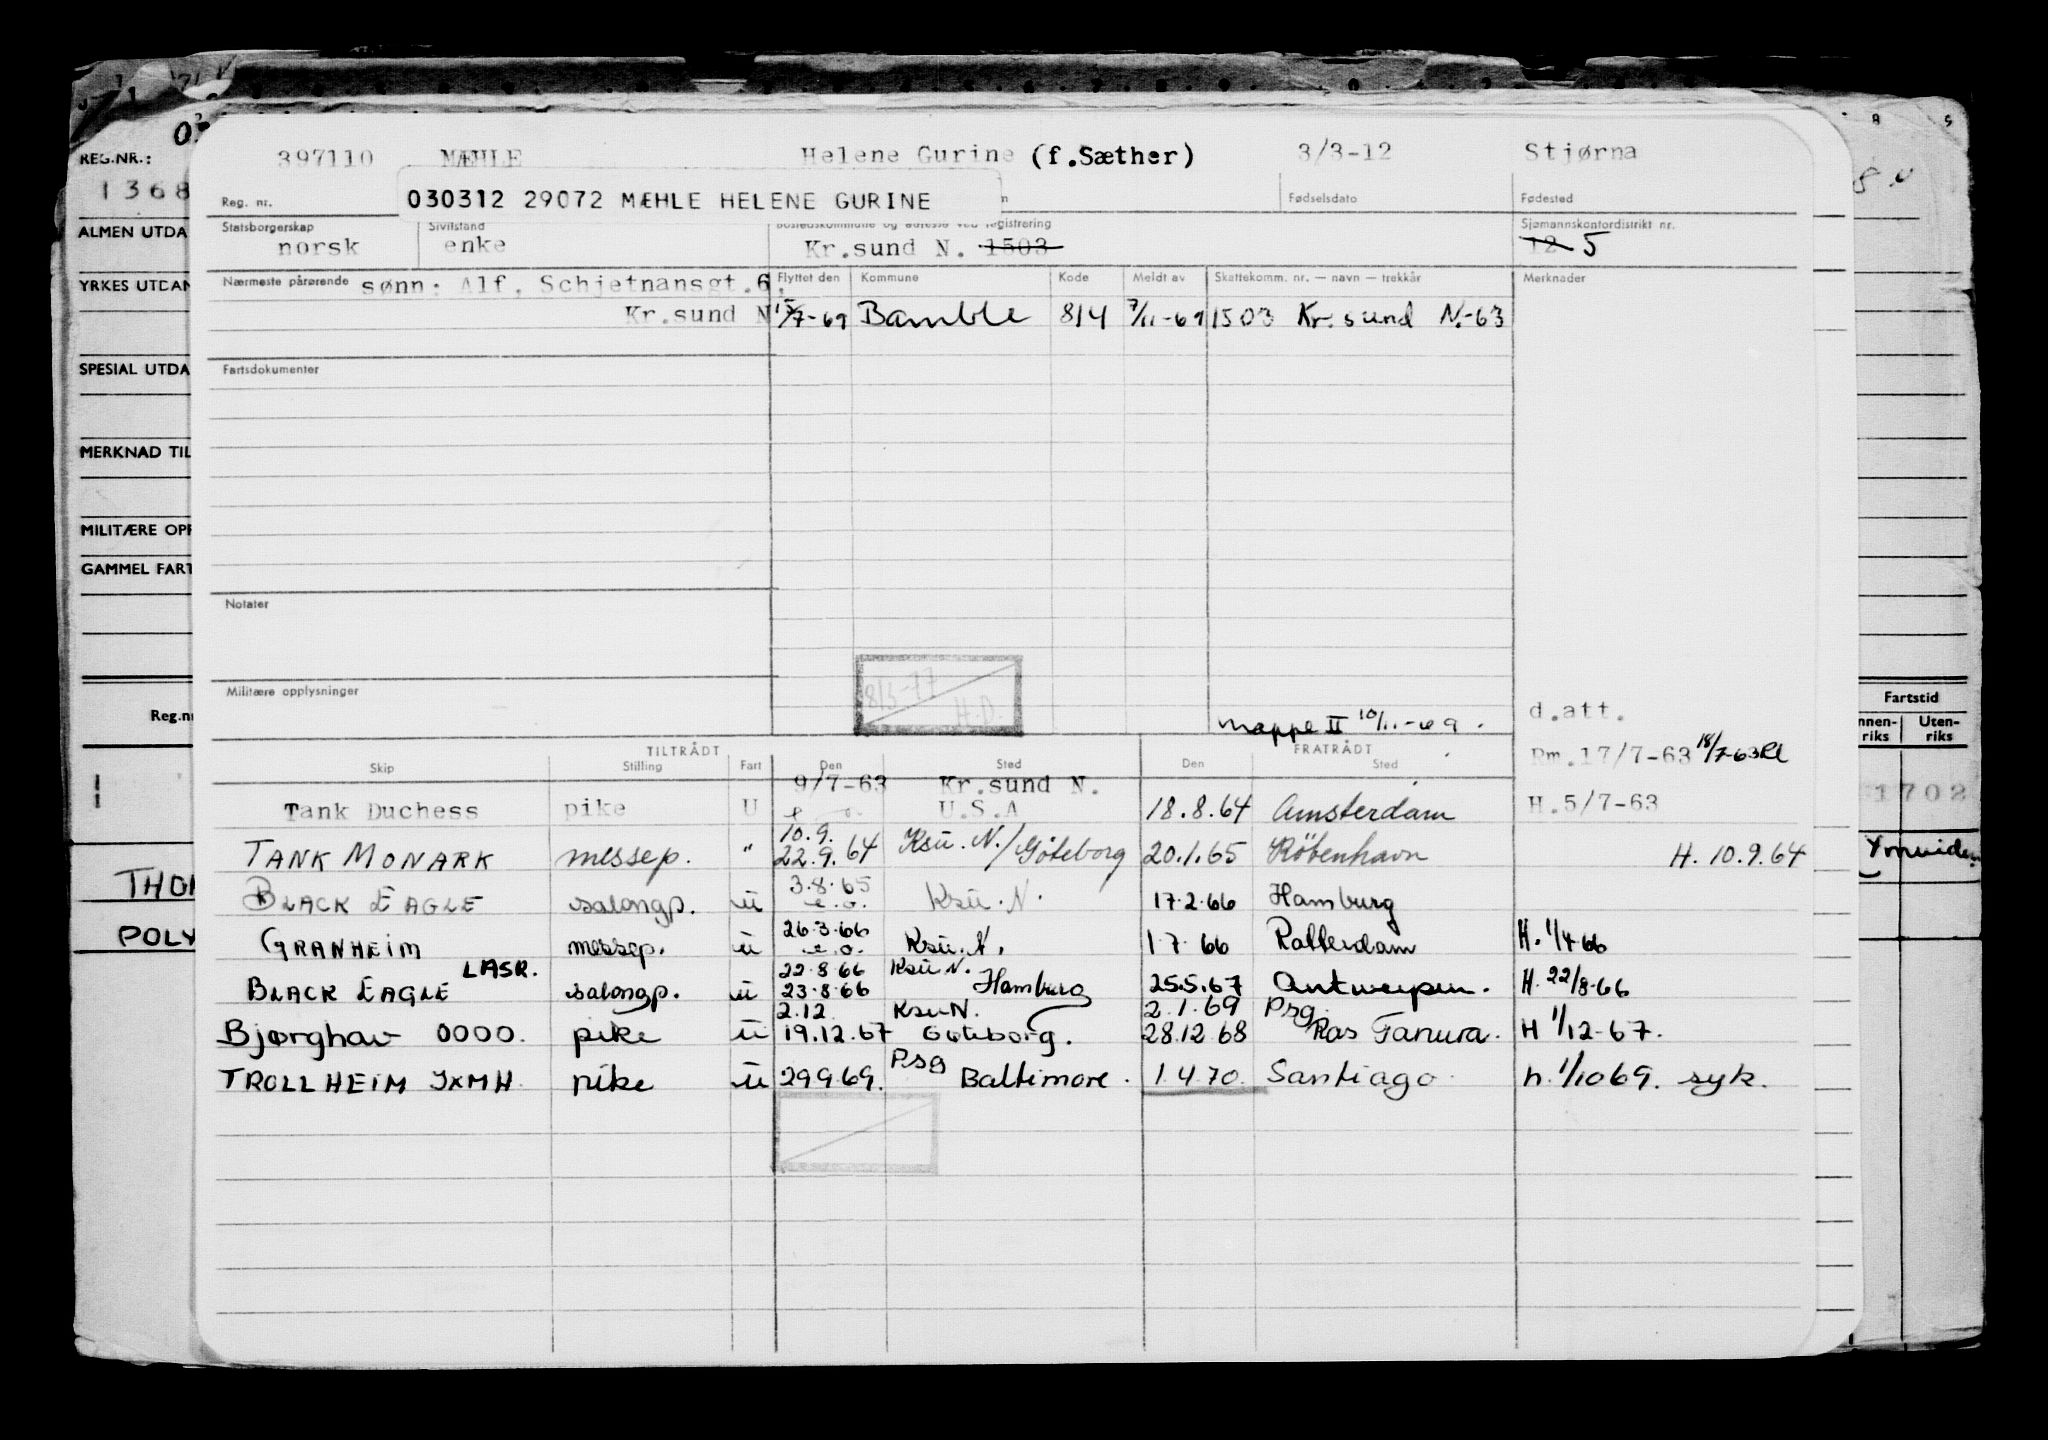 REG.NR.: 397110 MÆHLE Helene Gurine (f.Sæther) 3/3-12 Stjørna
1368
Reg. nr. 030312 29072 MÆHLE HELENE GURINE Fødselsdato Fødested
ALMEN UTDA
Statsborgerskap Sivilstand Bostedskommune og adresse ved registrering Sjømannskontordistrikt nr.
norsk enke Kr.sund N. 1503 12 5
YRKES UTDAN
Nærmeste pårørende sønn: Alf, Schjetnansgt.6, Flyttet den Kommune Kode Meldt av Skattekomm. nr. — navn — trekkår Merknader
Kr.sund N 15/7-69 Bamble 814 7/11-69 1503 Kr.sund N.-63
SPESIAL UTDA
Fartsdokumenter
MERKNAD TIL
MILITÆRE OPP
GAMMEL FART
Notater
8/3-77
H.D.
Militære opplysninger
Fartstid
Reg.nr
nnen-riks Uten-riks
mappe II 10/11.-69. d.att.
TILTRÅDT FRATRÅDT Rm.17/7-63 18/7-63
Skip Stilling Fart Den Sted Den Sted
9/7-63 Kr.sund N.
Tank Duchess pike U U.S.A 18.8.64 Amsterdam H.5/7-63
1702
10.9.
TANK MONARK messep. " 22.9.64 Ksu.N./Göteborg 20.1.65 København H. 10.9.64
3.8.65
BLACK EAGLE salongp. u e.o. Ksu.N. 17.2.66 Hamburg
THO
26.3.66
GRANHEIM messep. u e.o. Ksu.N. 1.7.66 Rotterdam H. 1/4-66
POLY
LASR. 22.8.66 Ksu N.
BLACK EAGLE salongp. u 23.8.66 Hamburg 25.5.67 Antwerpen. H. 22/8-66
2.12. Ksu N. 2.1.69 Psg
Bjørghav OOOO. pike u 19.12.67 Göteborg. 28.12.68 Ras Tanura. H 1/12-67.
Psg
TROLLHEIM JXMH pike u 29.9.69. Baltimore. 1.4.70. Santiago. h. 1/10 69. syk.